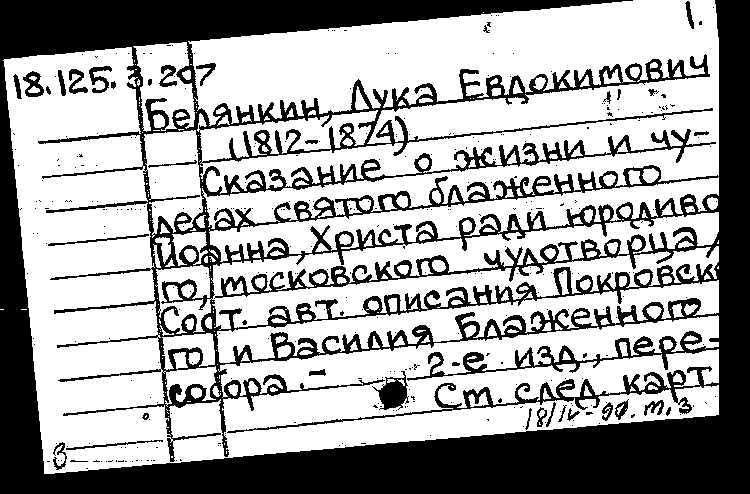 1.
18.125.3.207
Белянкин, Лука Евдокимович
(1812-1874).
Сказание о жизни и чу-
десах святого блаженного
Иоанна, Христа ради юродиво
го, московского чудотворца /
Сост. авт. описания Покровск
го и Василия Блаженного
собора. - 2-е изд., пере-
Ст. след. карт
18/IV-90. т. 3
В